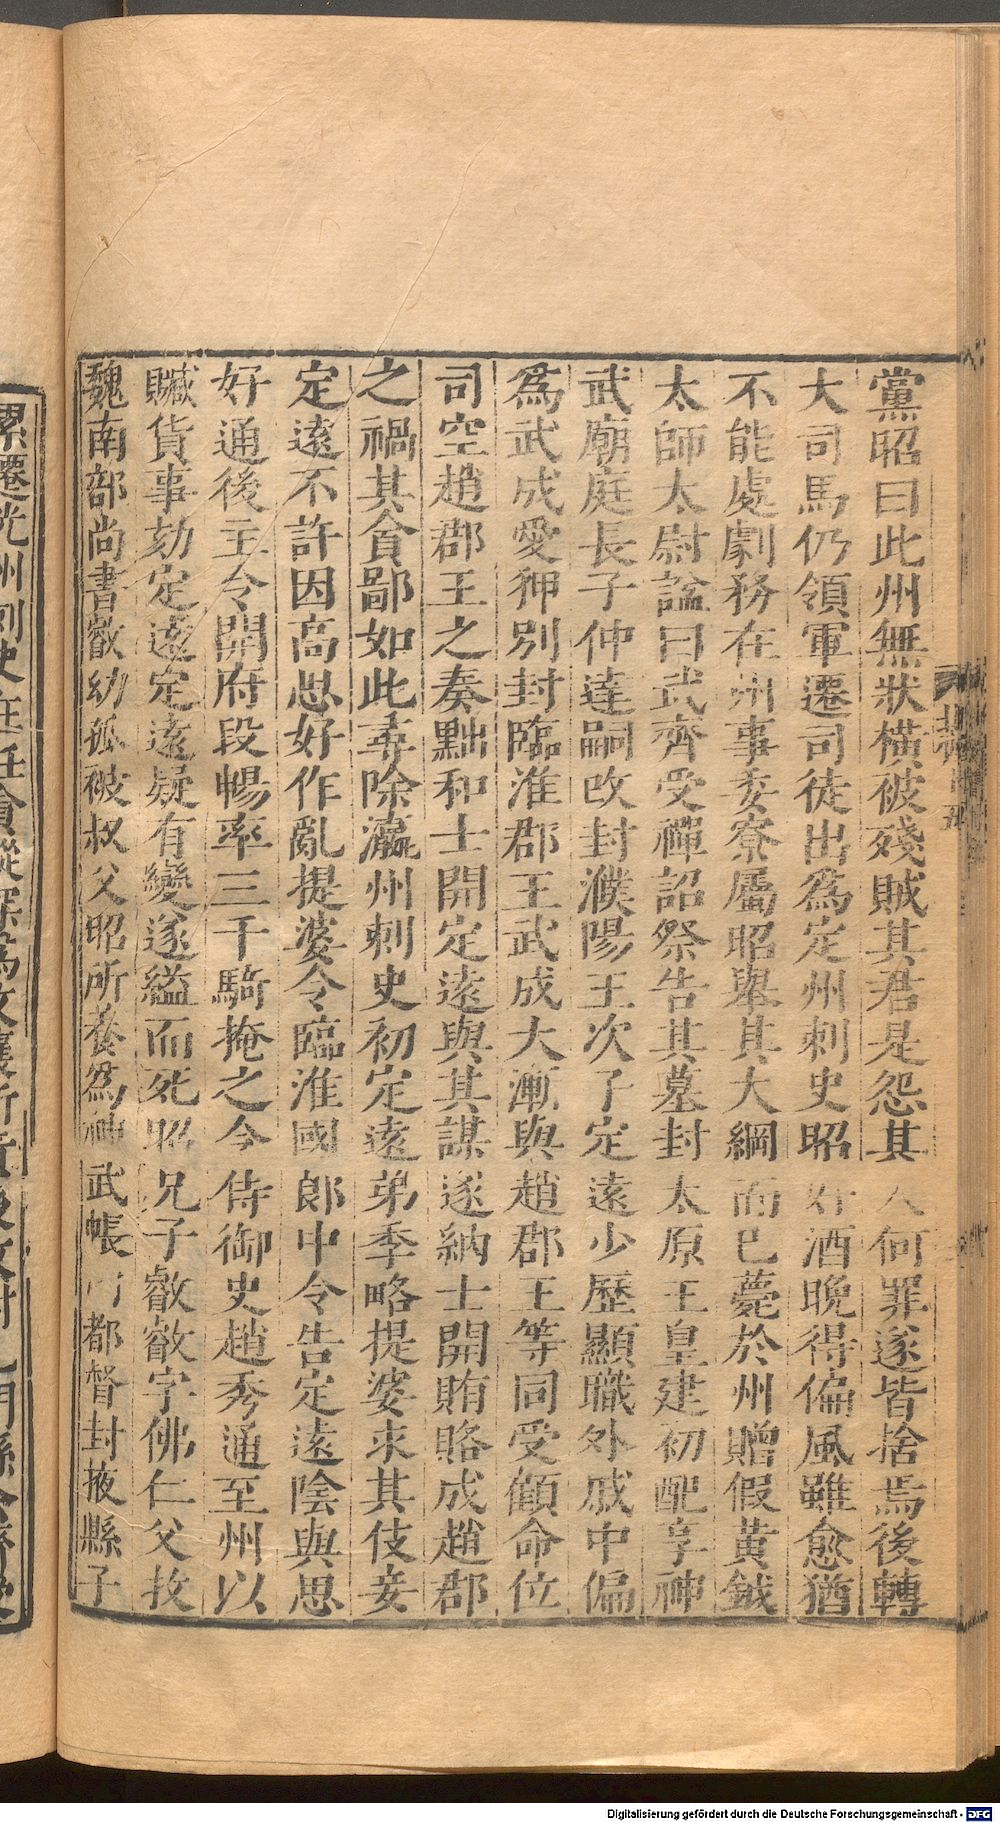 黨昭曰此州無狀橫被殘賊其君是怨其人何罪遂皆捨焉後轉
大司馬仍領軍遷司徒出爲定州刺史昭好酒晚得偏風雖愈猶
不能處劇務在州事委寮屬昭舉其大綱而已薨於州贈假黃鉞
太師太尉諡曰武齊受禪詔祭告其墓封太原王皇建初配享神
武廟庭長子仲達嗣改封濮陽王次子定遠少歷顯職外戚中偏
爲武成愛狎別封臨淮郡王武成大漸與趙郡王等同受顧命位
司空趙郡王之奏黜和士開定遠與其謀遂納士開賄賂成趙郡
之禍其貪鄙如此尋除瀛州刺史初定遠弟季略提婆求其伎妾
定遠不許因高思好作亂提婆令臨淮國郎中令告定遠陰與思
好通後主令開府段暢率三千騎掩之令侍御史趙秀通至州以
贓貨事劾定遠定遠疑有變遂縊而死昭兄子叡叡字佛仁父拔
魏南部尚書叡幼孤被叔父昭所養爲神武帳內都督封掖縣子
累遷光州刺史在任貪縱深爲文襄所責後改封九門縣公齊受
Digitalisierung gefördert durch die Deutsche Forschungsgemeinschaft - DFG